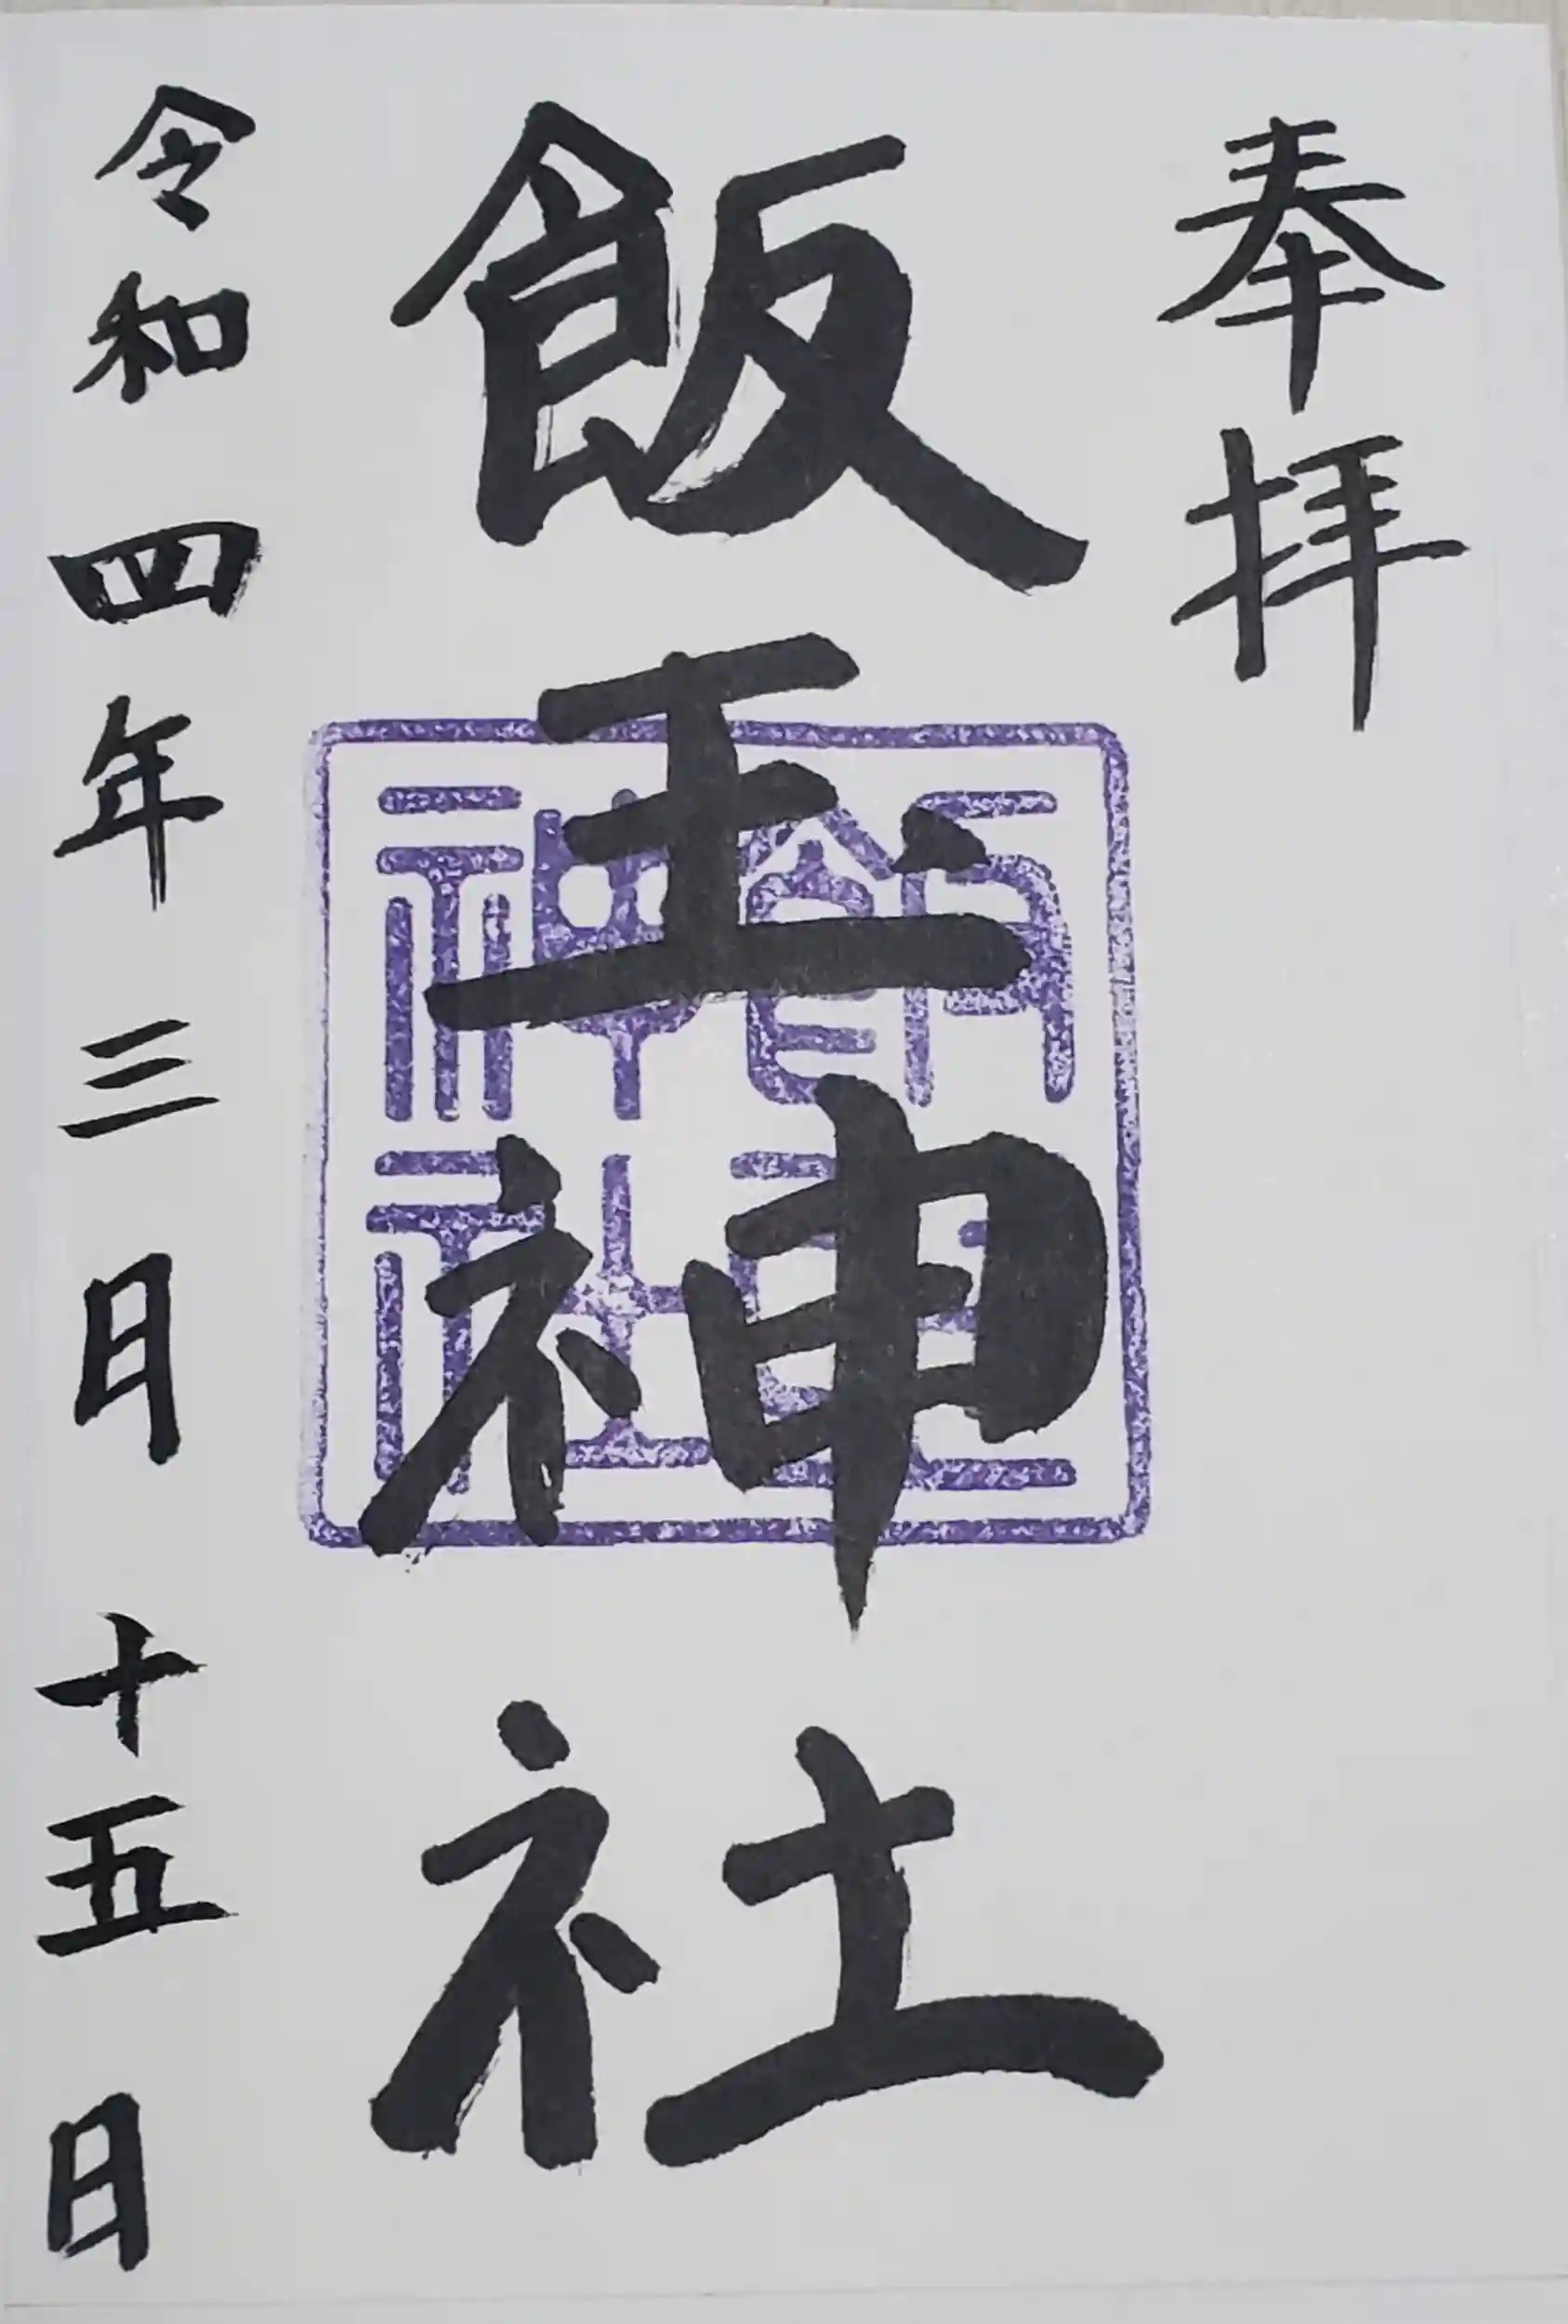 奉拝
飯玉神社
令和四年三月十五日
飯
神社